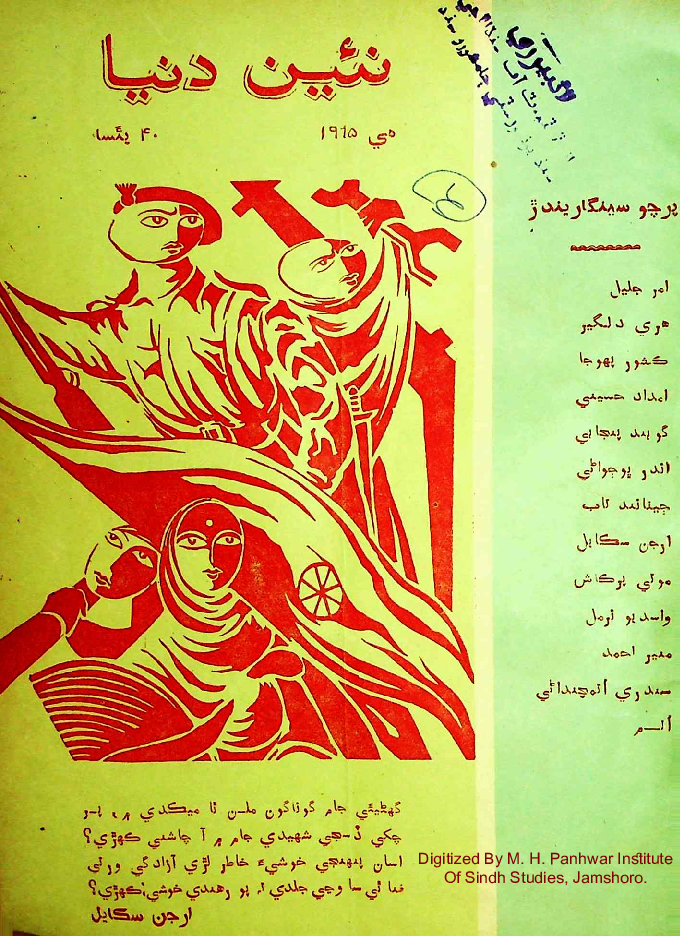 نئين دنيا
مي ١٩٦٥
۴۰ پئسا
پرچو سينگاريندڙ
امر جليل
هري دلگير
ڪشور پهوجا
امداد حسيني
گوبند پنجابي
اندر ڀوڄواڻي
ارجن سڪايل
موتي پرڪاش
واسديو نرمل
منير احمد
سندري اتمچنداڻي
گهڻيئي جام گوناگون ملن ٿا ميڪدي ۾، پر
چکي ڏسجي شهيدي جام ۾ آ چاشني ڪهڙي؟
اسان پنهنجي خوشيءَ خاطر لڙي آزادگي ورتي
فنا ٿي سا وڃي جلدي ته پو رهندي خوشي ڪهڙي؟
ارجن سڪايل
Digitized By M. H. Panhwar Institute
Of Sindh Studies, Jamshoro.